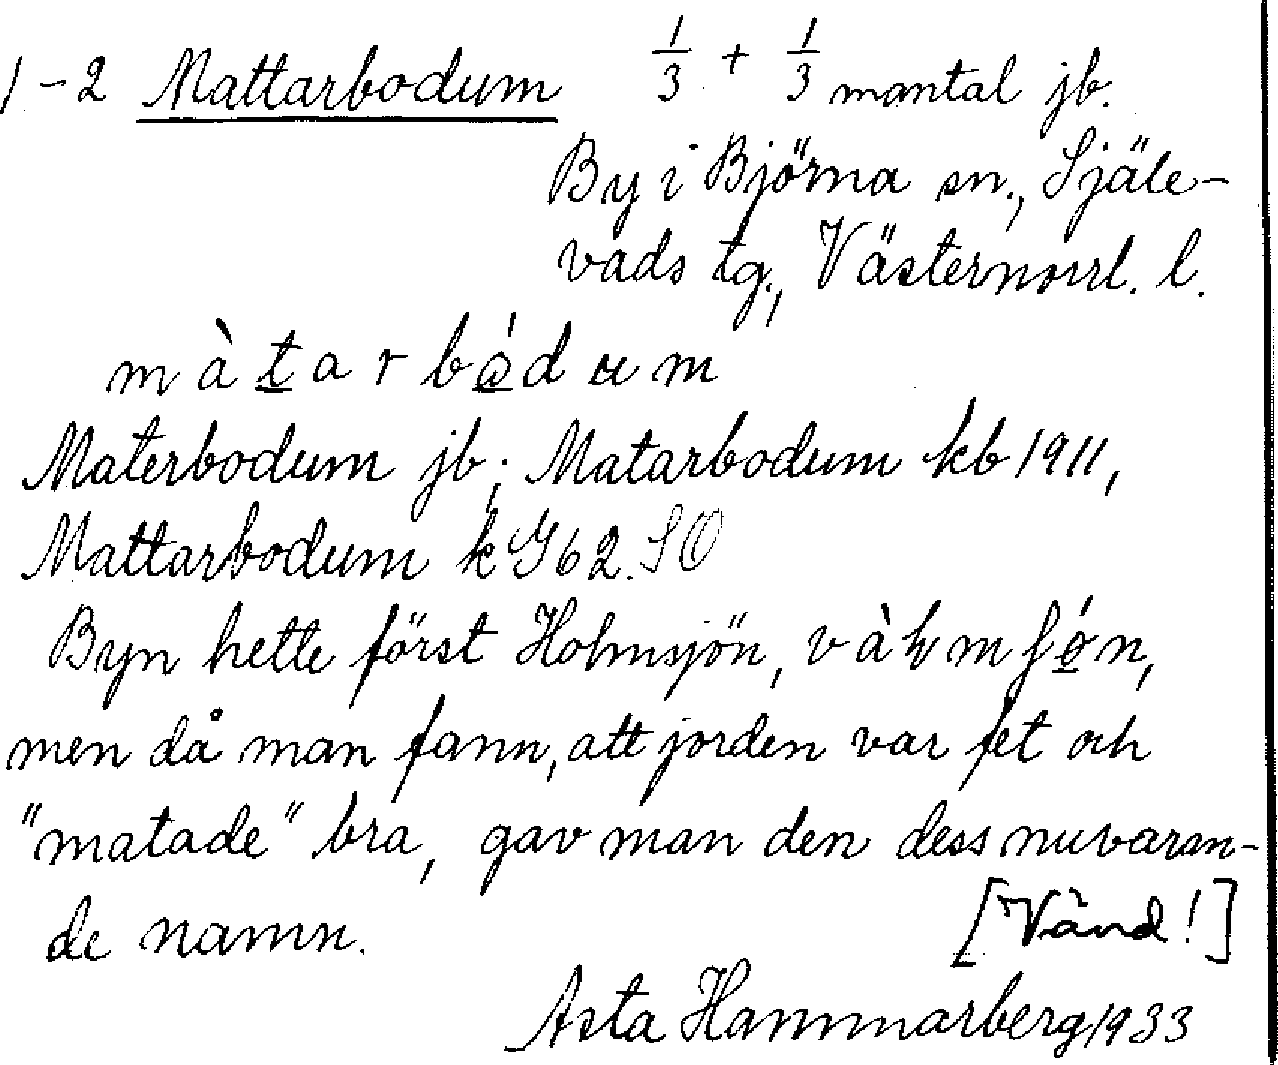 1-2 Mattarbodum 1/3 + 1/3 mantal jb.
By i Björna sn., Själe-
vads tg., Västernorrl. l.
màtarbódum
Materbodum jb; Matarbodum kb 1911,
Mattarbodum k G62. SO
Byn hette först Holmsjön,
men då man fann, att jorden var fet och
"matade" bra, gav man den dess nuvaran-
de namn. [Vänd!]
Asta Hammarberg 1933